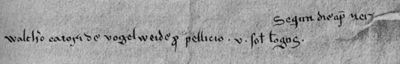 Sequn die ap̄ zei
walth'o cantori de vogelweide ꝓ pellicio . v . sol̄ longos .